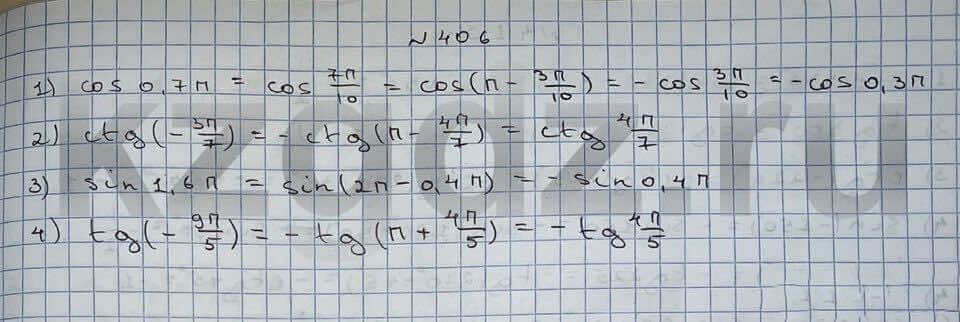 № 406
1) cos 0,7π = cos 7π/10 = cos(π - 3π/10) = - cos 3π/10 = - cos 0,3π
2) ctg(- 3π/7) = - ctg(π - 4π/7) = ctg 4π/7
3) sin 1,6π = sin(2π - 0,4π) = - sin 0,4π
4) tg(- 9π/5) = - tg(π + 4π/5) = - tg 4π/5
kzgdz.ru